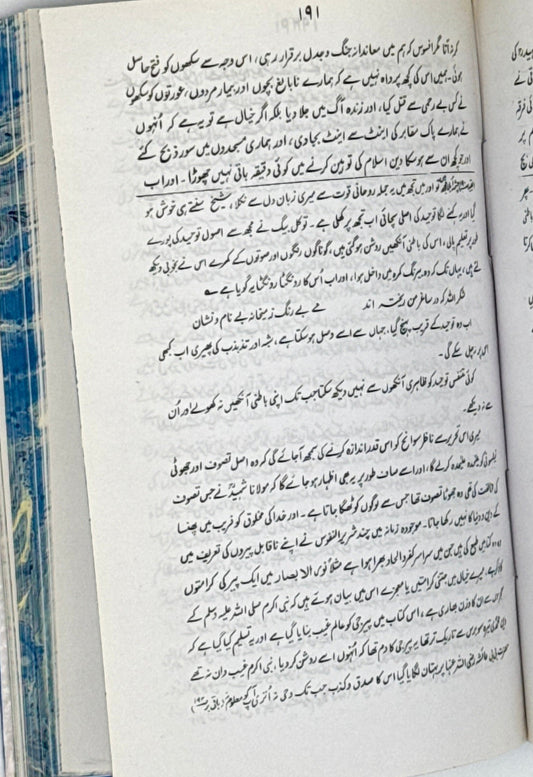 ۱۹۱
کرنا تھا مگر افسوس کہ ہم میں معاندانہ جنگ و جدل برقرار رہی، اس وجہ سے سکھوں کو فتح حاصل
ہوئی۔ ہمیں اس کی کچھ پرواہ نہیں ہے کہ ہمارے نابالغ بچوں اور بیمار مردوں، عورتوں کو سکھوں
نے کس بے رحمی سے قتل کیا، اور زندہ آگ میں جلا دیا بلکہ اگر خیال ہے تو یہ ہے کہ اُنہوں
نے ہمارے پاک مقابر کی اینٹ سے اینٹ بجا دی، اور ہماری مسجدوں میں سور ذبح کئے
اور جو کچھ ان سے ہو سکا دین اسلام کی توہین کرنے میں کوئی دقیقہ باقی نہیں چھوڑا۔ اور اب
تو اور میں تجھ میں یہ جملہ روحانی قوت سے میری زبان دل سے نکلا، شیخ سنتے ہی خوش ہو
گیا اور کہنے لگا توحید کی اصلی سچائی اب تجھ پر کھلی ہے۔ توکل بیگ نے مجھ سے اصول توحید کی پورے
طور پر تعلیم پالی، اس کی باطنی آنکھیں روشن ہو گئی ہیں، گوناگوں رنگوں اور صورتوں کے کمرے اس نے بخوبی دیکھ
لئے ہیں، یہاں تک کہ وہ بیرنگ کمرہ میں داخل ہوا، اور اب اُس کا رونگٹا رونگٹا یہ گویا ہے
شکر اللہ کہ در ساغر من ریختہ اند مے بے رنگ زمیخانہ بے نام و نشان
اب وہ توحید کے قریب پہنچ گیا، جہاں سے اسے وصل ہو سکتا ہے، شبہ اور تذبذب کی پھیری اب کبھی
اس پر نہ چل سکے گی۔
کوئی متنفس توحید کو ظاہری آنکھوں سے نہیں دیکھ سکتا جب تک اپنی باطنی آنکھیں نہ کھولے اور اُن
سے نہ دیکھے۔
میری اس تحریر سے ناظر سوانح کو اس قدر اندازہ کرنے کی سمجھ آجائے گی کہ وہ اصل تصوف اور جھوٹی
کو علیحدہ علیحدہ کرے گا، اور اسے صاف طور پر یہ بھی اظہار ہو جائے گا کہ مولانا شہیدؒ نے جس تصوف
کی مخالفت کی تھی وہ جھوٹا تصوف تھا جس سے لوگوں کو ٹھگا جاتا ہے۔ اور خدا کی مخلوق کو فریب میں پھنسا
کے دین و دنیا کا نہیں رکھا جاتا۔ موجودہ زمانہ میں چند شریر النفوس نے اپنے ناقابل پیروں کی تعریف میں
وہ وہ کتابیں طبع کی ہیں جن میں سراسر کفر و الحاد بھرا ہوا ہے مثلاً نور الابصار میں ایک پیر کی کرامتوں
میرے خیال میں جتنی کرامتیں یا معجزے اس میں بیان ہوئے ہیں کہ نبی اکرم صلی اللہ علیہ وسلم کے
سے ان کا وزن بھاری ہے، اس کتاب میں پیر جی کو عالم غیب بنایا گیا ہے اور یہ تسلیم کیا گیا ہے کہ
تیرہ سو برس سے تاریک تر تھا یہ پیر جی کا دم تھا کہ انہوں نے اسے روشن کر دیا، نبی اکرم غیب دان نہ تھے
حضرت عائشہ رضی اللہ عنہا پر بہتان لگایا گیا اس کا صدق و کذب جب تک وحی نہ اُتری آپ کو معلوم